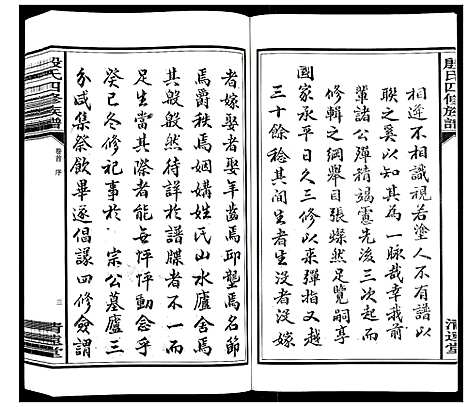 殷氏四修族譜
相逕不相識視若塗人不有譜以
聯之奚以知其為一脉哉幸我前
輩諸公殫精竭慮先後三次起而
修輯之綱舉目張燦然足覽嗣享
國家承平日久三修以來彈指又越
三十餘稔其間生者生沒者沒嫁
清逗堂
者嫁娶者娶羊齒焉邱壟焉名節
焉爵秩焉姻媾姓氏山水廬舍焉
其般般然待詳於譜牒者不一而
足生當其際者能無怦怦動念乎
癸巳冬修祀事於 宗公墓廬三
分咸集祭飲畢遂倡議四修僉謂
殷氏四修族譜
卷首 序
三